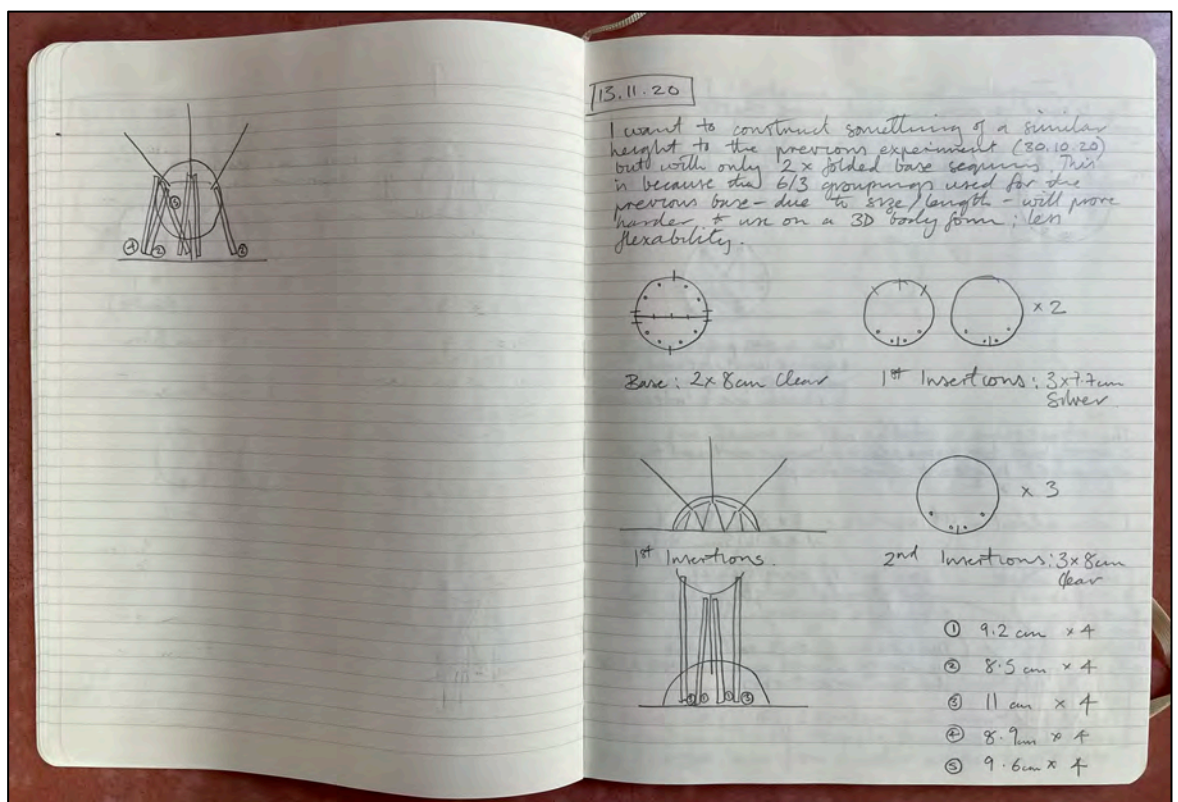 ④ ② ⑤ ②
13.11.20
I want to construct something of a similar
height to the previous experiment (30.10.20)
but with only 2 x folded base sequins. This
is because the 6/3 groupings used for the
previous base - due to size/length - will prove
harder to use on a 3D body form; less
flexability.
x 2
Base: 2 x 8cm Clear
1st Insertions: 3x7.7cm
Silver
x 3
1st Insertions.
2nd Insertions: 3x8cm
Clear
① 9.2 cm x 4
② 8.5 cm x 4
③ 11 cm x 4
④ 8.9cm x 4
⑤ 9.6cm x 4